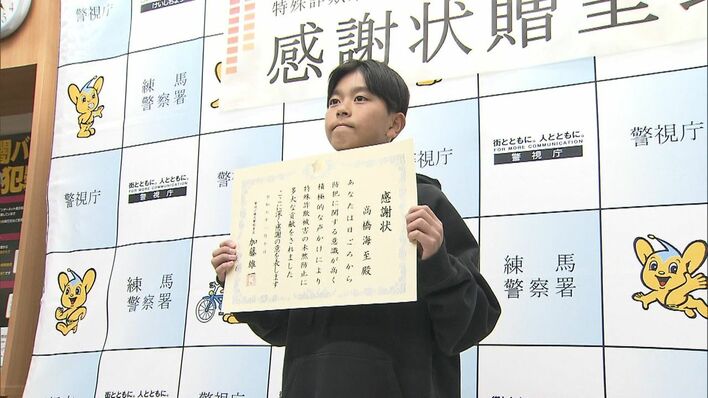 けいしちょう
特殊詐欺
感謝状贈呈
警視庁
練馬
警察署
街とともに。人とともに。
FOR MORE COMMUNICATION
警視庁
警視庁
警視庁
街とともに。人とともに。
FOR MORE COMMUNICATION
警視庁
練馬
警察署
練馬
警察署
警視庁
警視庁
感謝状
高橋海至殿
あなたは日ごろから
防犯に関する意識が高く
積極的な声かけにより
特殊詐欺被害の未然防止に
多大な貢献をされました
ここに深く感謝の意を表します
加藤雄
街とともに。人とともに。
警視庁